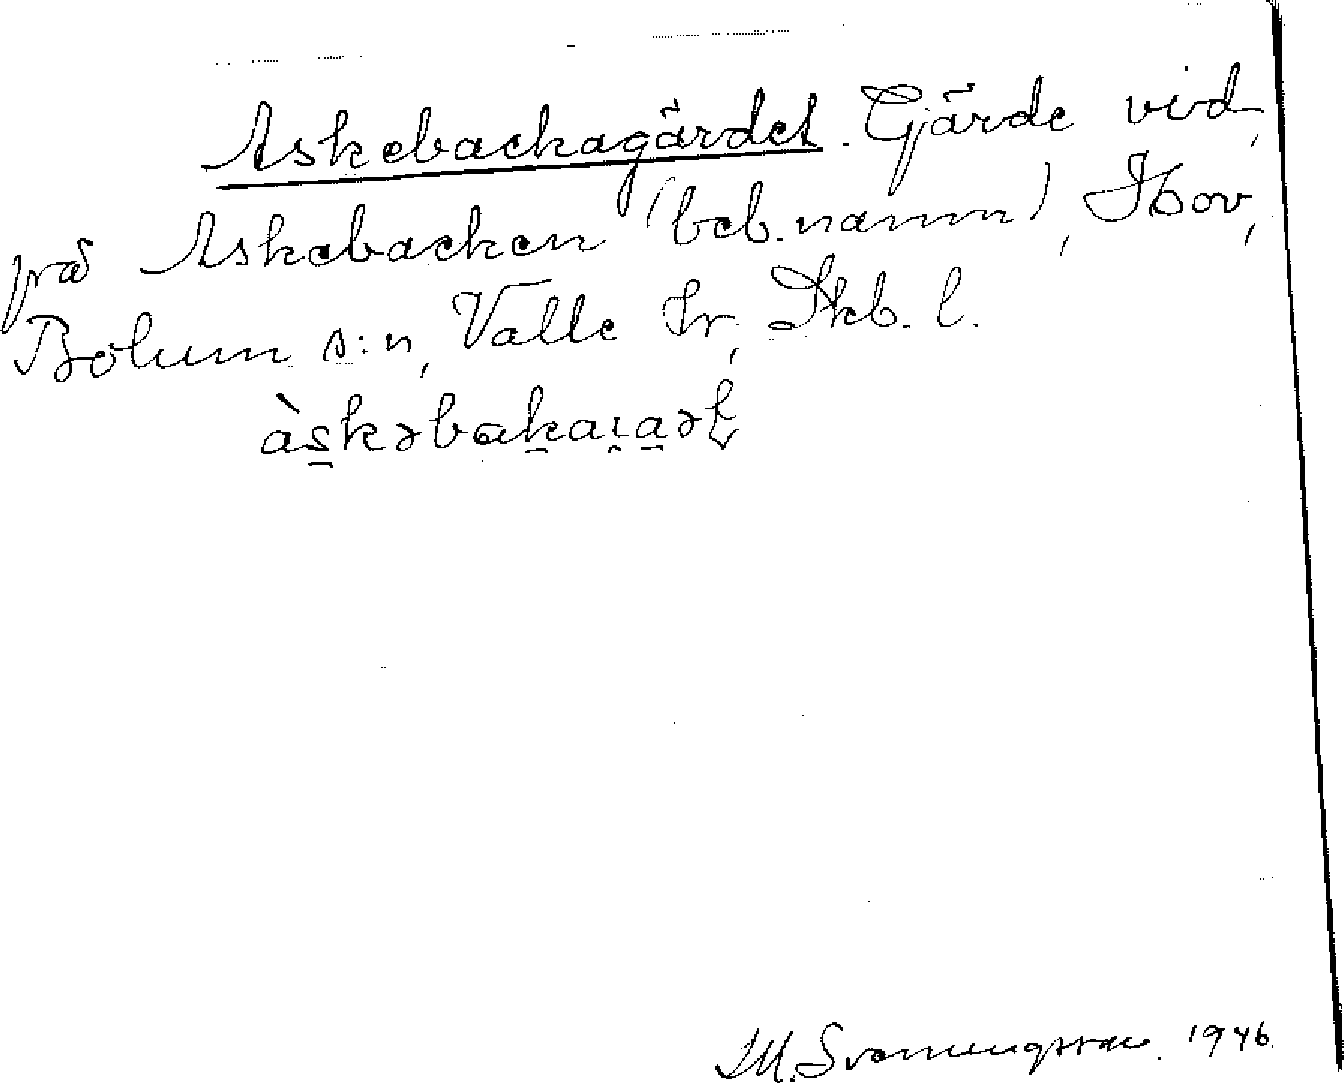 Askebackagärdet. Gärde vid,
på Askebacken (beb.namn), Hov,
Bolum s:n, Valle hr, Skb. l.
às̱kəbaḵaɹa̱ət
M. Svenningsson. 1946.